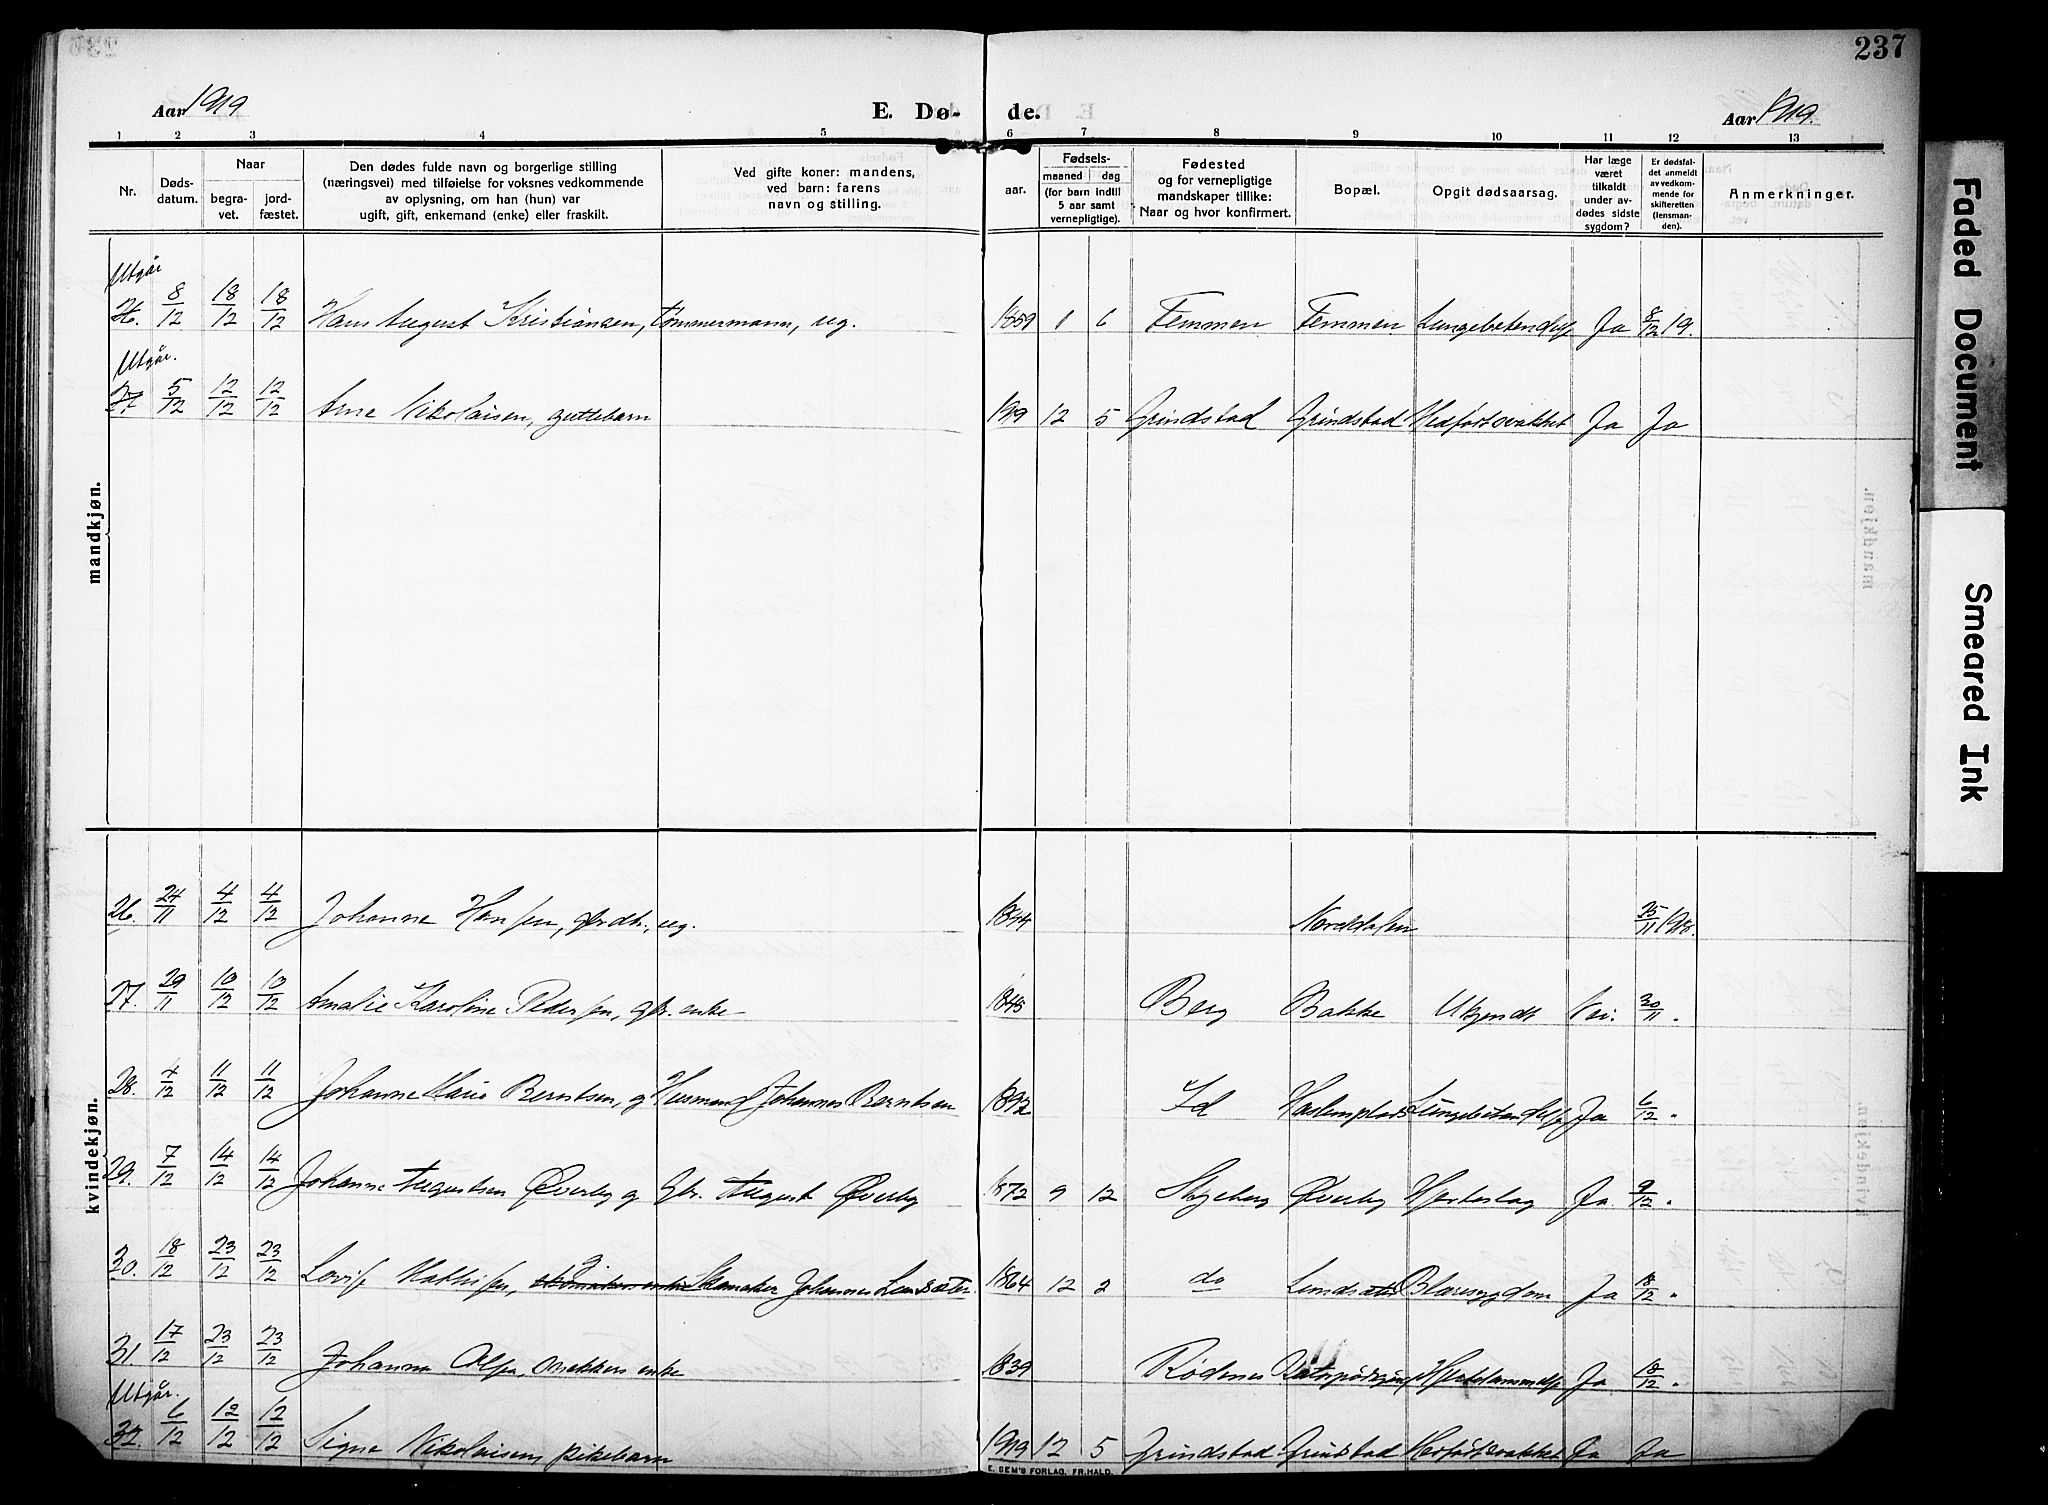 237
Aar 1919 E. Dø- de. Aar 1919.
1 2 3 4 5 6 7 8 9 10 11 12 13
Nr. Døds-datum. Naar begra-vet. jord-fæstet. Den dødes fulde navn og borgerlige stilling (næringsvei) med tilføielse for voksnes vedkommende av oplysning, om han (hun) var ugift, gift, enkemand (enke) eller fraskilt. Ved gifte koner: mandens, ved barn: farens navn og stilling. aar. Fødsels- maaned dag (for barn indtil 5 aar samt vernepligtige). Fødested og for vernepligtige mandskaper tillike: Naar og hvor konfirmert. Bopæl. Opgit dødsaarsag. Har læge været tilkaldt under av-dødes sidste sygdom? Er dødsfal-det anmeldt av vedkom-mende for skifteretten (lensman-den). Anmerkninger.
mandkjøn.
Utgår
26. 8/12 18/12 18/12 Hans August Kristiansen, tømmermann, ug. 1859 1 6 Femmen Femmen Lungebetendelse Ja 8/12 19.
Utgår.
27 5/12 12/12 12/12 Arne Nikolaisen, guttebarn 1919 12 5 Grindstad Grindstad Medfødt svakhet Ja Ja
kvindekjøn.
26. 24/11 4/12 4/12 Johanne Hansen, gbrdtr., ug. 1844 Norddalen 25/11 1919.
27. 29/11 10/12 10/12 Amalie Karoline Pedersen, gbr. enke 1845 Berg Bakke Ukjendt Nei. 30/11 "
28. 4/12 11/12 11/12 Johanne Marie Berntsen, g Husmand Johannes Berntsen 1892 Id Lungebetendelse Ja 6/12 "
29. 7/12 14/12 14/12 Johanne Augustsen Øverby g Gbr. August Øverby 1872 9 12 Skjeberg Øverby Herteslag Ja. 9/12 "
30. 18/12 23/12 23/12 Lovise Mathisen, Skomaker Johannes Lundsæter. 1864 12 2 do Lundsæter Blæresygdom Ja 18/12 "
31. 17/12 23/12 23/12 Johanna Olsen, snekkers enke 1839 Rødenes Ja 18/12 "
Utgår.
32. 6/12 12/12 12/12 Signe Nikolaisen, pikebarn 1919 12 5 Grindstad Grindstad Medfødt svakhet Ja Ja
E. SEM'S FORLAG, FR.HALD.
Faded Document
Smeared Ink